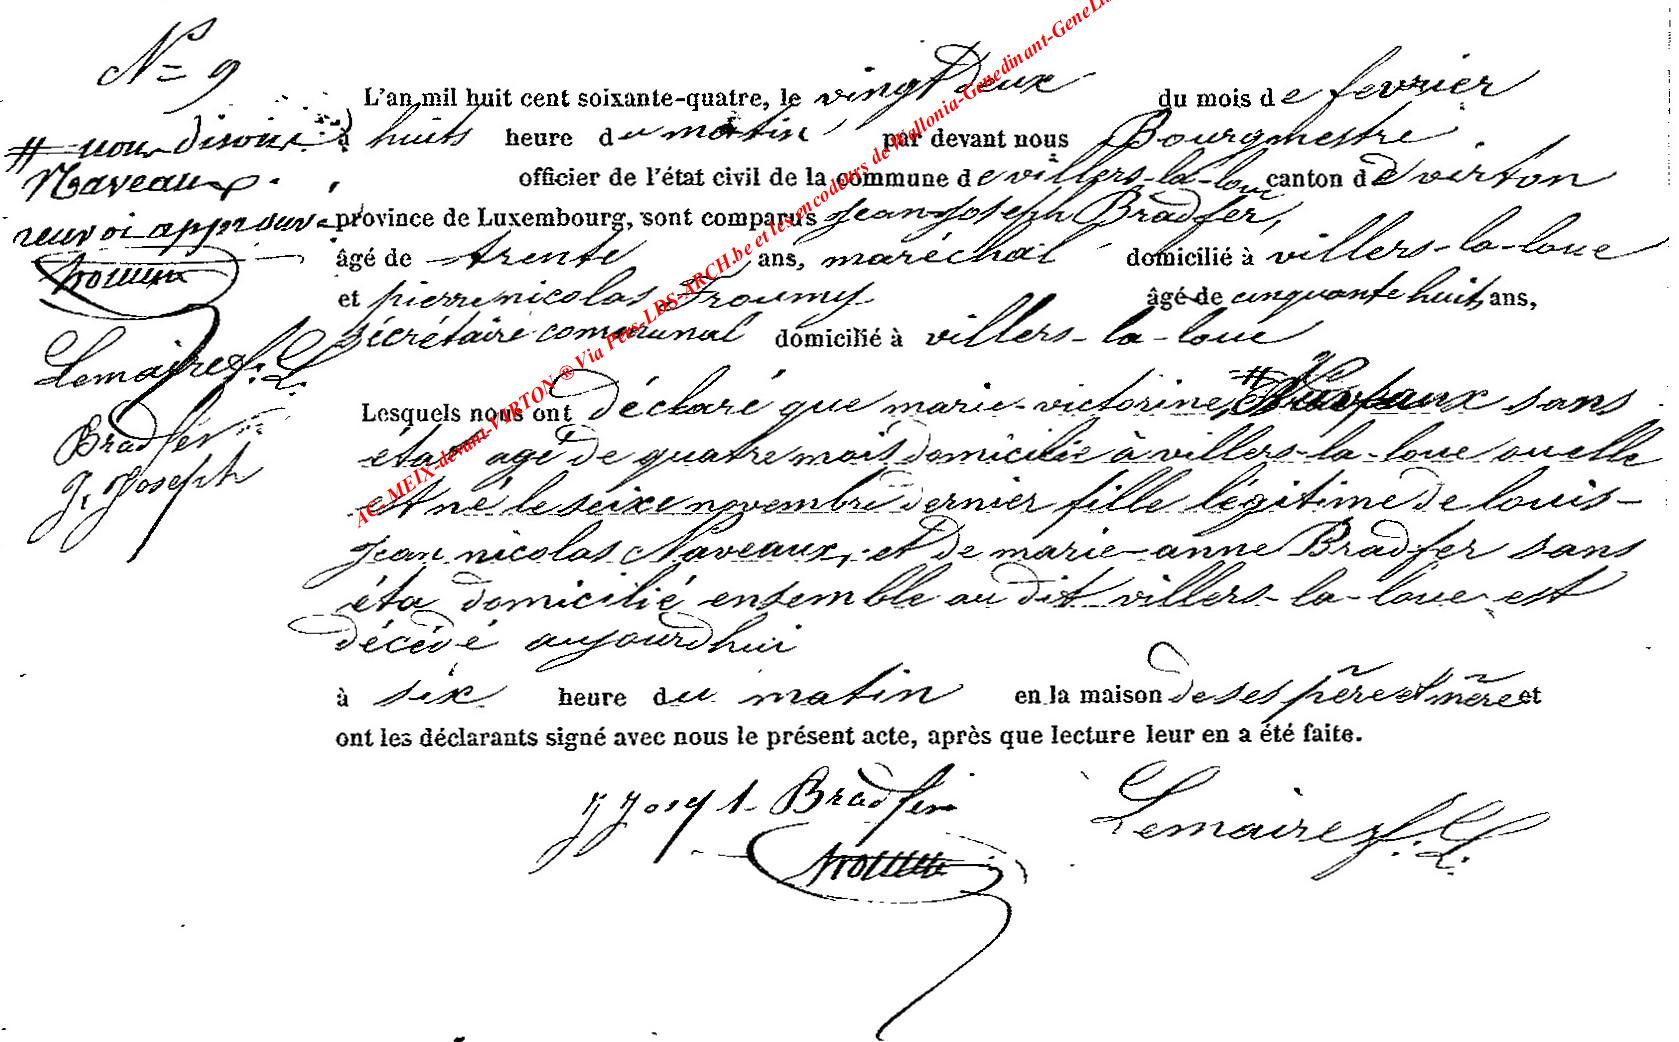 N= 9
# nous disons
Naveaux
renvoi approuvé
Lemaire f. L.
Bradfer
J. Joseph
L'an mil huit cent soixante-quatre, le vingt deux du mois de fevrier
à huits heure du matin par devant nous Bourgmestre
officier de l'état civil de la commune de villers-la-loue canton de virton
province de Luxembourg, sont comparus jean-joseph Bradfer,
âgé de trente ans, maréchal domicilié à villers-la-loue
et pierre nicolas Troumy âgé de cinquante huit ans,
sécrétaire communal domicilié à villers-la-loue
Lesquels nous ont déclaré que marie-victorine # sans
éta agé de quatre mois domicilié à villers-la-loue ou elle
est né le seixe novembre dernier fille légitime de louis-
jean nicolas Naveaux, et de marie-anne Bradfer sans
éta domicilié ensemble au dit villers-la-loue est
décédé aujourdhui
à six heure du matin en la maison de ses père et mère et
ont les déclarants signé avec nous le présent acte, après que lecture leur en a été faite.
J Joseph Bradfer Lemaire f. L.
AC-MEIX-devant-VIRTON ® Via Pers-LDS-ARCH.be et les encodeurs de Wallonia-Genedinant-GeneLi